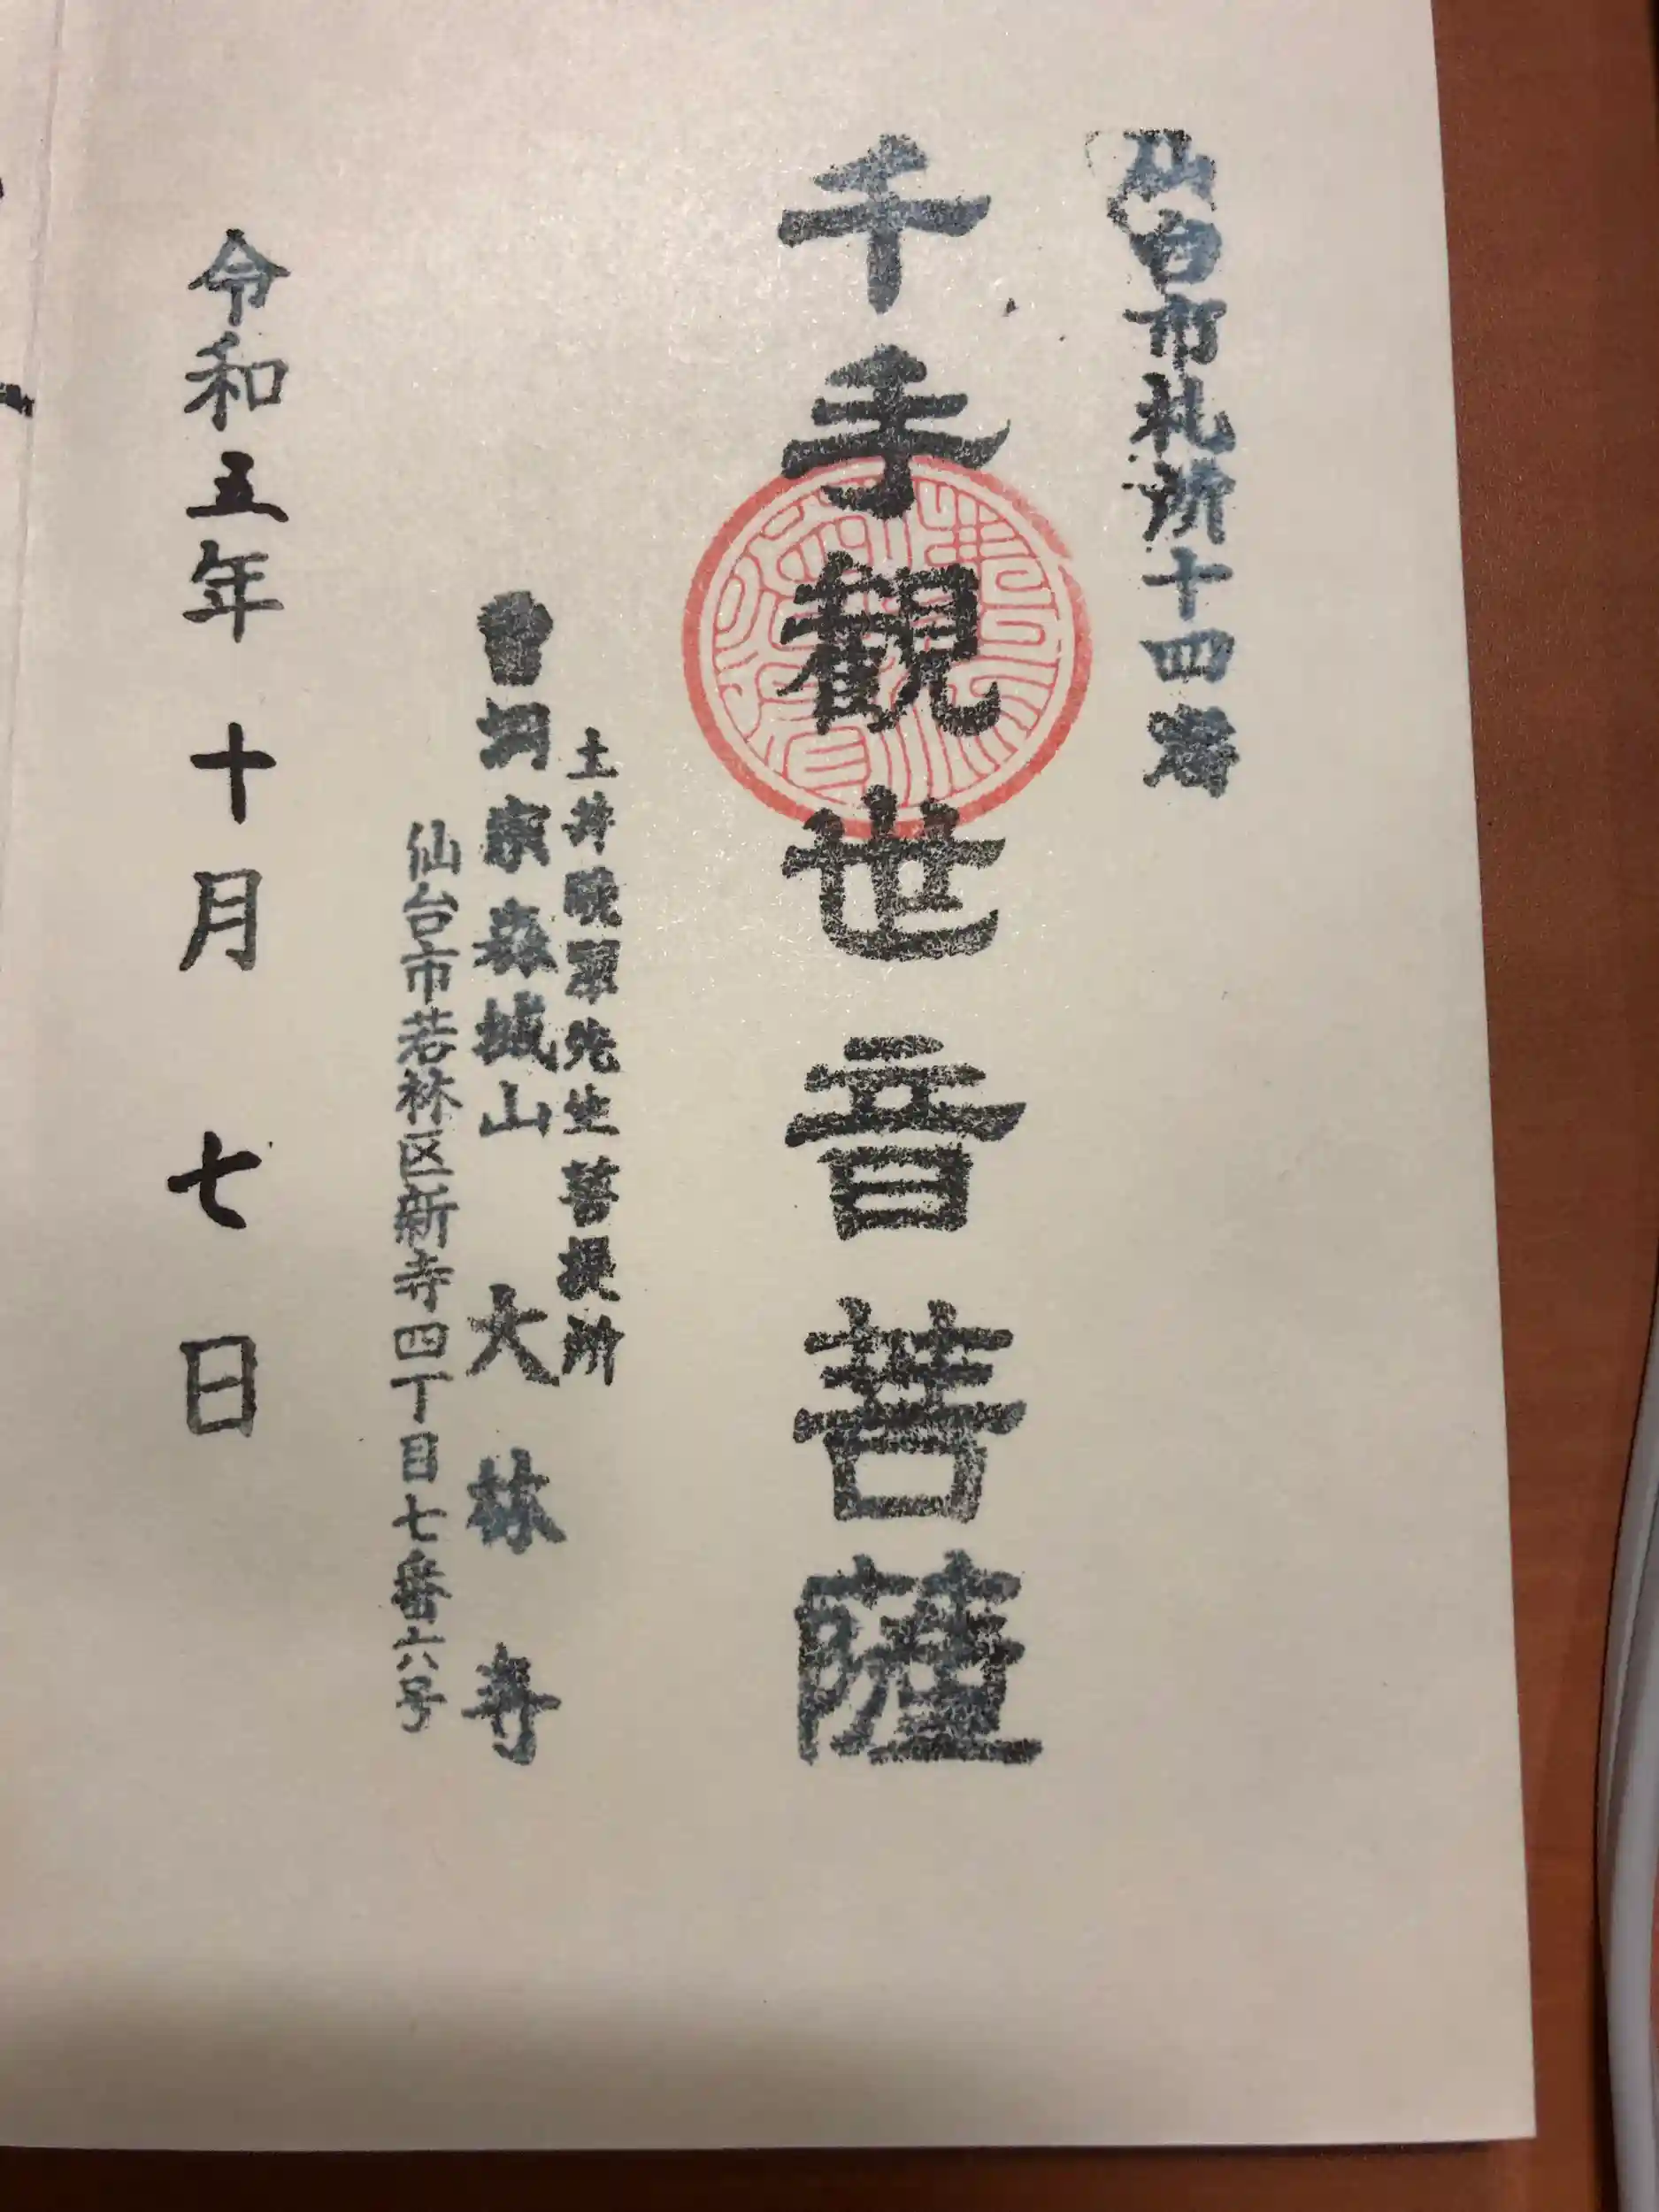 仙台市札所十四番
千手観世音菩薩
土井晩翠先生菩提所
曹洞宗森城山 大林寺
仙台市若林区新寺四丁目七番六号
令和五年十月七日